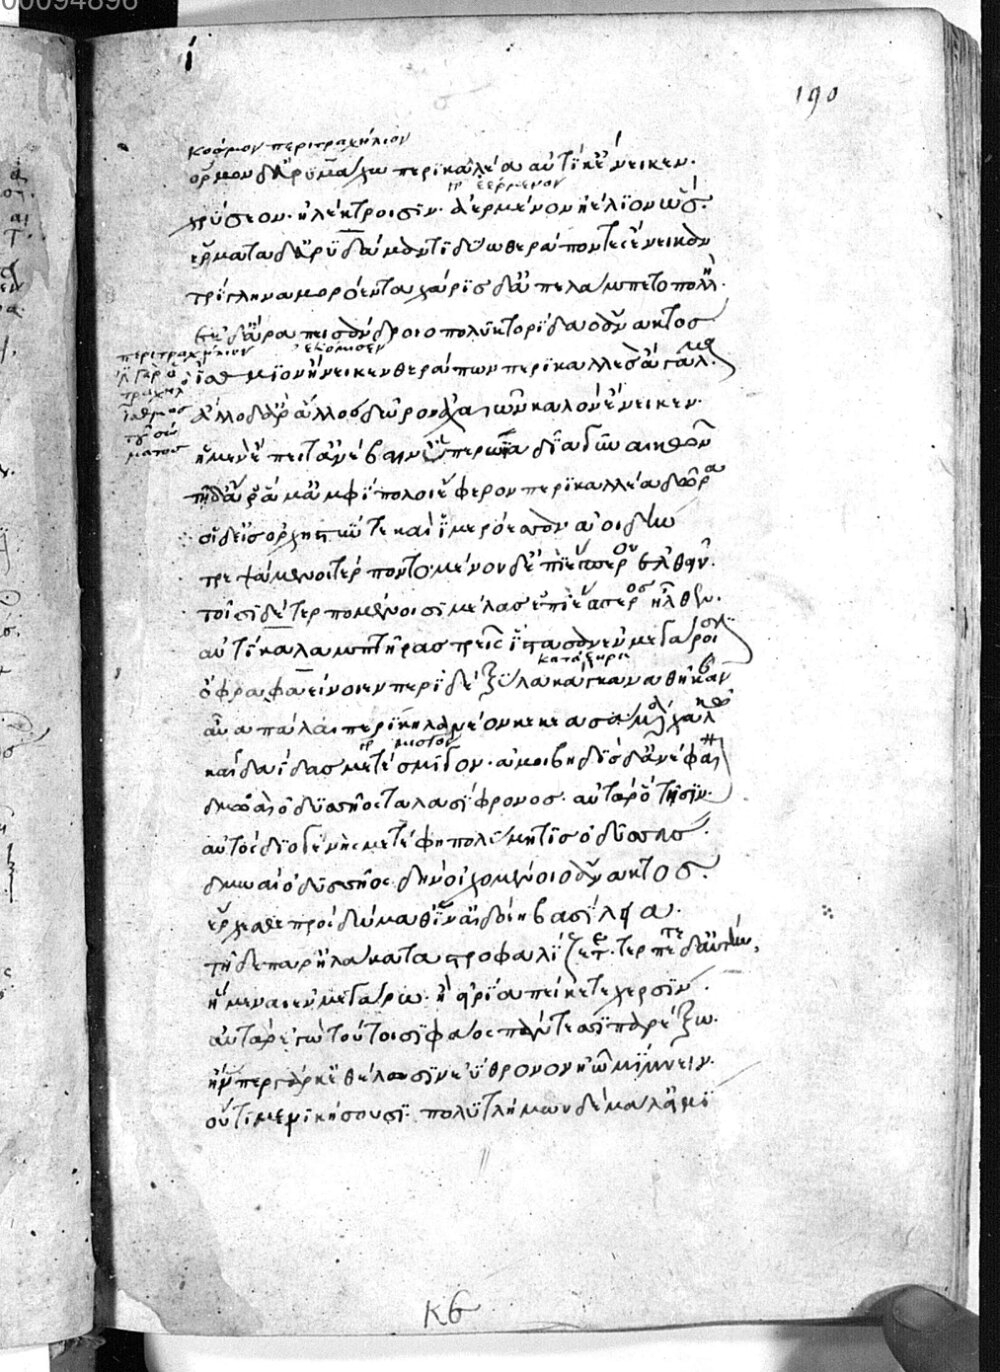 00094896
190
κόσμον περιτραχήλιον
ὅρμον δ' Εὐρυμάχω περικαλλέα αὐτίκ' ἔνεικεν.
γρ ἐερμένον
χρύσεον. ἠλέκτροισιν. ἀερμένον ἠέλιον ὥς.
ἕρματα δ' Εὐρυδάμαντι δύω θεράποντες ἔνεικαν
τρίγληνα μορόεντα χάρις δ' ἀπελάμπετο πολλή.
ἐκ δ' ἄρα Πεισάνδροιο Πολυκτορίδαο ἄνακτος
περιτραχήλιον
ἐκόμισεν
ἴσθμιον ἤνεικεν θεράπων περικαλλὲς ἄγαλμα.
τράχηλ
ἰσθμὸς
τοῦ σώ
ματος
ἄλλο δ' ἄρ' ἄλλος δῶρον Ἀχαιῶν καλὸν ἔνεικεν.
ἡ μὲν ἔπειτ' ἀνέβαιν' ὑπερώϊα δῖα γυναικῶν
τῇ δ' ἄρ' ἅμ' ἀμφίπολοι ἔφερον περικαλλέα δῶρα
οἱ δ' εἰς ὀρχηστύν τε καὶ ἱμερόεσσαν ἀοιδὴν
τρεψάμενοι τέρποντο μένον δ' ἐπὶ ἕσπερον ἐλθεῖν.
τοῖσι δὲ τερπομένοισι μέλας ἐπὶ ἕσπερος ἦλθεν.
αὐτίκα λαμπτῆρας τρεῖς ἵστασαν ἐν μεγάροισιν
κατάξηρα
ὄφρα φαείνοιεν περὶ δὲ ξύλα κάγκανα θῆκαν
αὖα πάλαι περίκηλα νέον κεκεασμένα χαλκῷ
γρ μιστον
καὶ δαΐδας μετέμισγον. ἀμοιβηδὶς δ' ἀνέφαινον
δμωαὶ Ὀδυσσῆος ταλασίφρονος. αὐτὰρ ὁ τῇσιν.
αὐτὸς διογενὴς μετέφη πολύμητις Ὀδυσσεύς.
δμωαὶ Ὀδυσσῆος δὴν οἰχομένοιο ἄνακτος.
ἔρχεσθε πρὸς δώμαθ' ἵν' αἰδοίη βασίλεια.
τῇ δὲ παρ' ἠλάκατα στροφαλίζετε. τέρπετε δ' αὐτὴν,
ἥμεναι ἐν μεγάρω. ἢ εἴρια πείκετε χερσίν.
αὐτὰρ ἐγὼ τούτοισι φάος πάντεσσι παρέξω.
ἤν περ γάρ κ' ἐθέλωσιν ἐΰθρονον ἠῶ μίμνειν.
οὔτι με νικήσουσι. πολυτλήμων δὲ μάλ' εἰμὶ
κβ